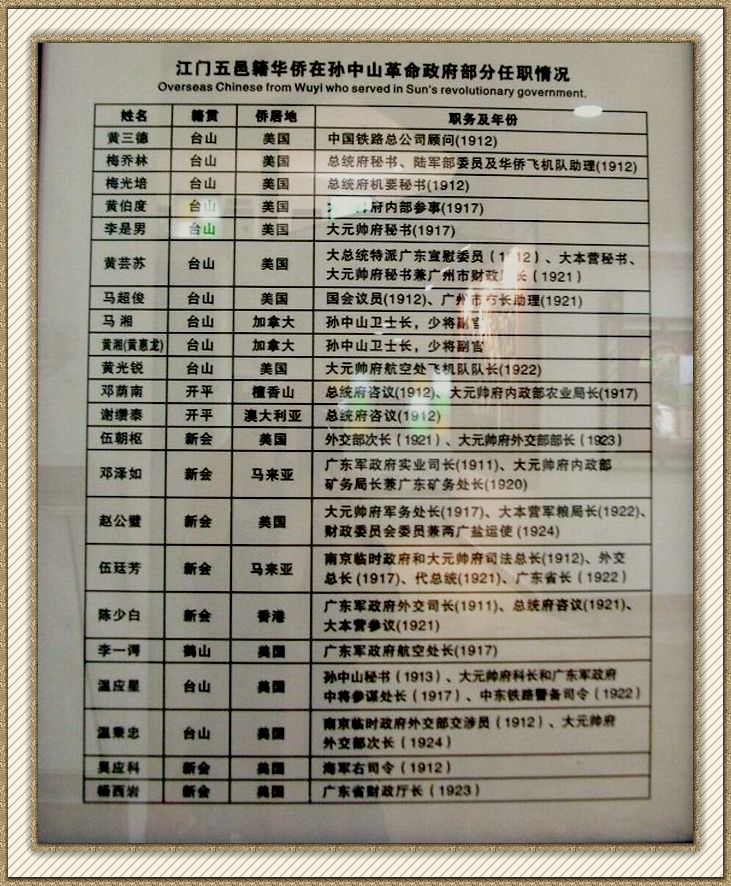 江门五邑籍华侨在孙中山革命政府部分任职情况
Overseas Chinese from Wuyi who served in Sun's revolutionary government.
姓名 籍贯 侨居地 职务及年份
黄三德 台山 美国 中国铁路总公司顾问(1912)
梅乔林 台山 美国 总统府秘书、陆军部委员及华侨飞机队助理(1912)
梅光培 台山 美国 总统府机要秘书(1912)
黄伯度 台山 美国 府内部参事(1917)
李是男 台山 美国 大元帅府秘书(1917)
黄芸苏 台山 美国 大总统特派广东宣慰委员(1912)、大本营秘书、
大元帅府秘书兼广州市财政 长(1921)
马超俊 台山 美国 国会议员(1912)、广州市市长助理(1921)
马湘 台山 加拿大 孙中山卫士长，少将副官
黄湘(黄惠龙) 台山 加拿大 孙中山卫士长，少将副官
黄光锐 台山 美国 大元帅府航空处飞机队队长(1922)
邓荫南 开平 檀香山 总统府咨议(1912)、大元帅府内政部农业局长(1917)
谢缵泰 开平 澳大利亚 总统府咨议(1912)
伍朝枢 新会 美国 外交部次长(1921)、大元帅府外交部部长(1923)
邓泽如 新会 马来亚 广东军政府实业司长(1911)、大元帅府内政部
矿务局长兼广东矿务处长(1920)
赵公璧 新会 美国 大元帅府军务处长(1917)、大本营军粮局长(1922)、
财政委员会委员兼两广盐运使(1924)
伍廷芳 新会 马来亚 南京临时政府和大元帅府司法总长(1912)、外交
总长(1917)、代总统(1921)、广东省长(1922)
陈少白 新会 香港 广东军政府外交司长(1911)、总统府咨议(1921)、
大本营参议(1921)
李一谔 鹤山 美国 广东军政府航空处长(1917)
温应星 台山 美国 孙中山秘书(1913)、大元帅府科长和广东军政府
中将参谋处长(1917)、中东铁路警备司令(1922)
温秉忠 台山 美国 南京临时政府外交部交涉员(1912)、大元帅府
外交部次长(1924)
吴应科 新会 美国 海军右司令(1912)
杨西岩 新会 美国 广东省财政厅长(1923)